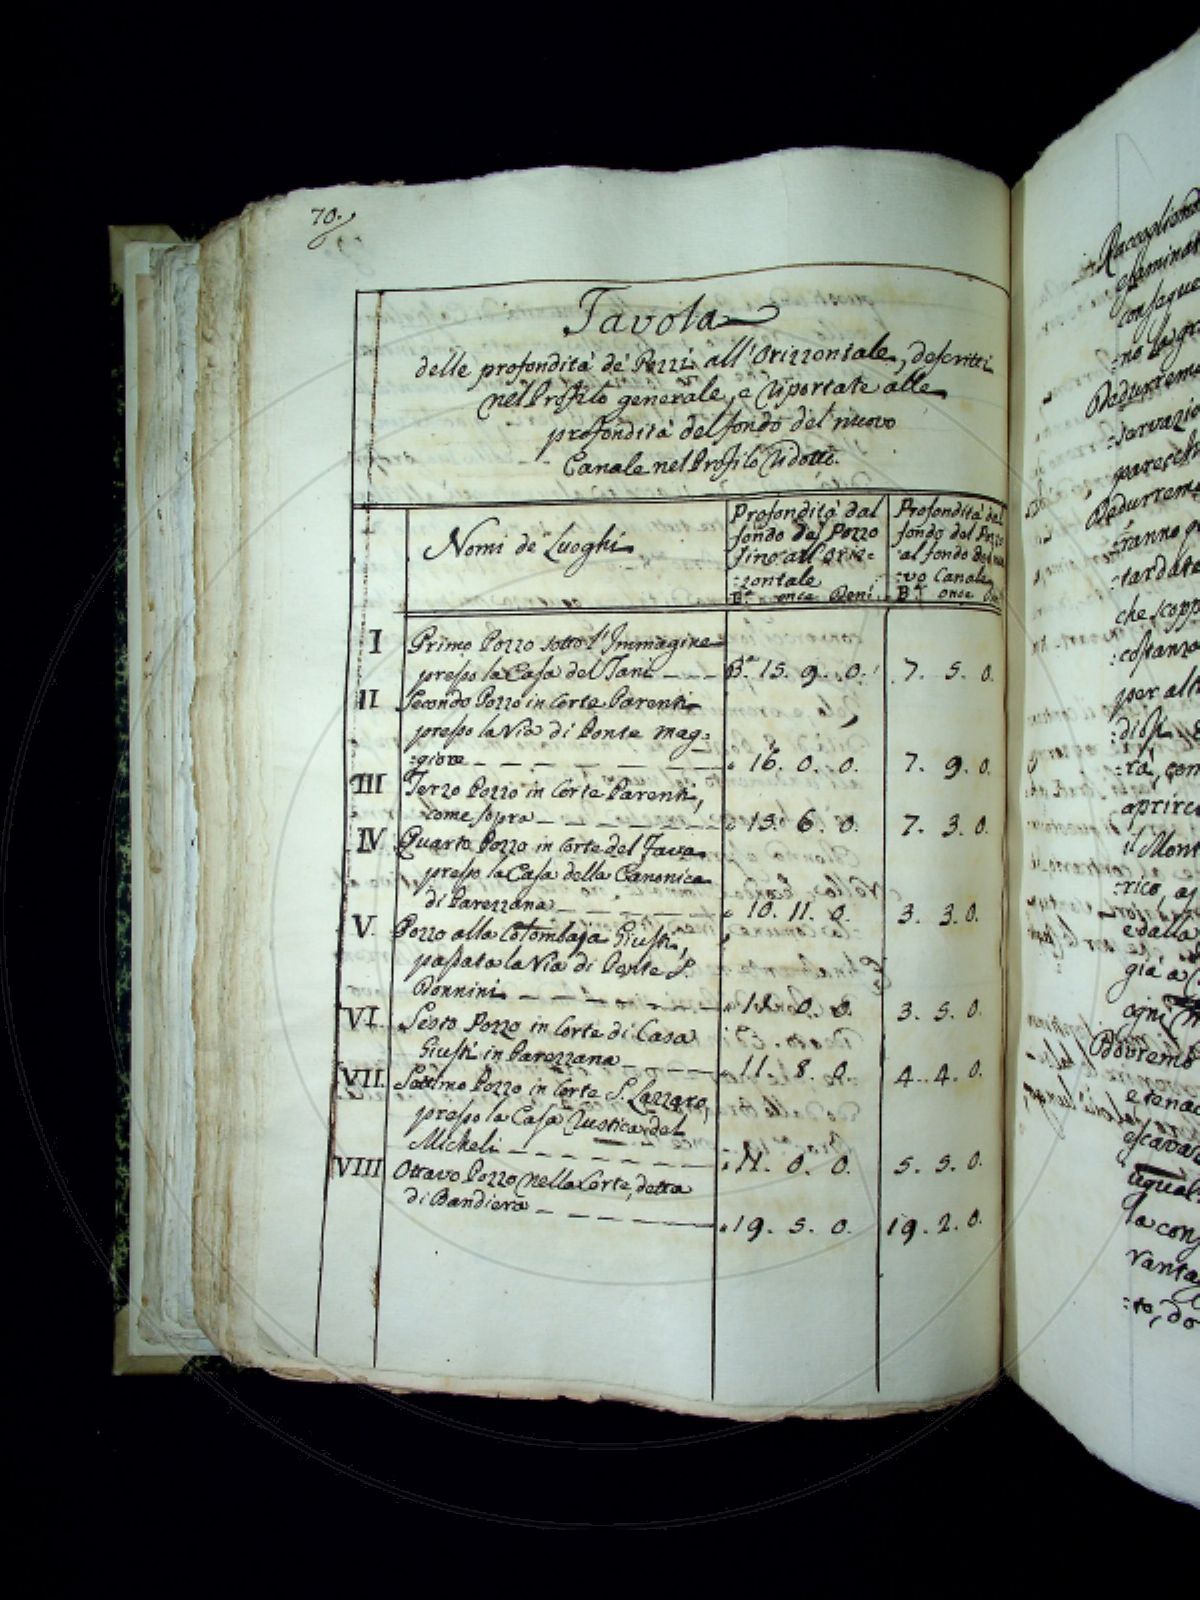 70.
Tavola
delle profondità de' Pozzi all'Orizzontale, descritti
nel Profilo generale, e riportate alle
profondità del fondo del nuovo
Canale nel Profilo ridotto.
Nomi de' Luoghi
Profondità dal
fondo del Pozzo
fino all'Oriz=
=zontale
B.a once Deni
Profondità dal
fondo del Pozzo
al fondo del nuo
=vo Canale
B.a once
I Primo Pozzo sotto l'Immagine
presso la Casa del Tani --- B.a 15. 9. 0. 7. 5. 0.
II Secondo Pozzo in Corte Parenti
presso la Via di Ponte mag=
=giore --- 16. 0. 0. 7. 9. 0.
III Terzo Pozzo in Corte Parenti,
come sopra --- 15. 6. 0. 7. 3. 0.
IV Quarto Pozzo in Corte del Fava
presso la Casa della Canonica
di Parezzana --- 10. 11. 0. 3. 3. 0.
V. Pozzo alla Colombaja Giusti,
passata la Via di Ponte S.
Donnini --- 0. 0. 3. 5. 0.
VI. Sesto Pozzo in Corte di Casa
Giusti in Parezzana --- 11. 8. 0. 4. 4. 0.
VII. Settimo Pozzo in Corte S. Lazzaro,
presso la Casa rustica del
Micheli --- 0. 0. 5. 5. 0.
VIII Ottavo Pozzo nella Corte, detta
di Bandiera --- 19. 5. 0. 19. 2. 0.
Raccogliendo
esaminat
consegue
Dedurremo
=servazio
parecchi
Dedurremo
=ranno
=tardate
che scopp
=costanza
per alt
=rà, con
aprire
il Mont
=rico,
e dalla
già a
ogni
Dovremo
e tenac
escavaz
uguali
la cons
vanta
=to, do